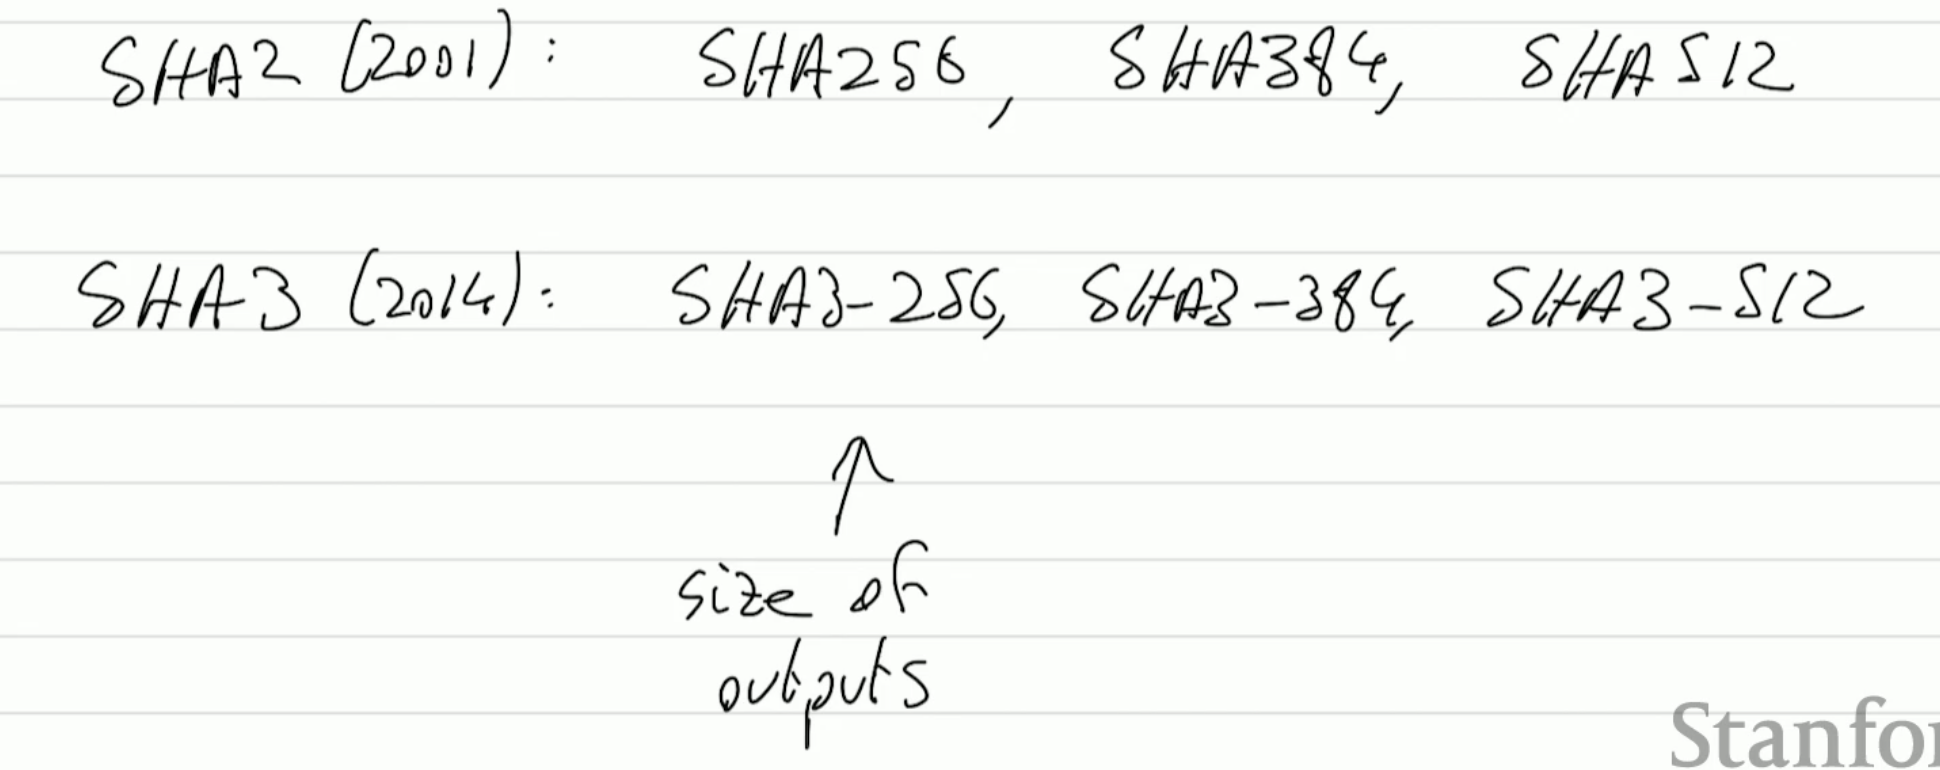 SHA2 (2001): SHA256, SHA384, SHA512
SHA3 (2014): SHA3-256, SHA3-384, SHA3-512
size of
outputs
Stanfor